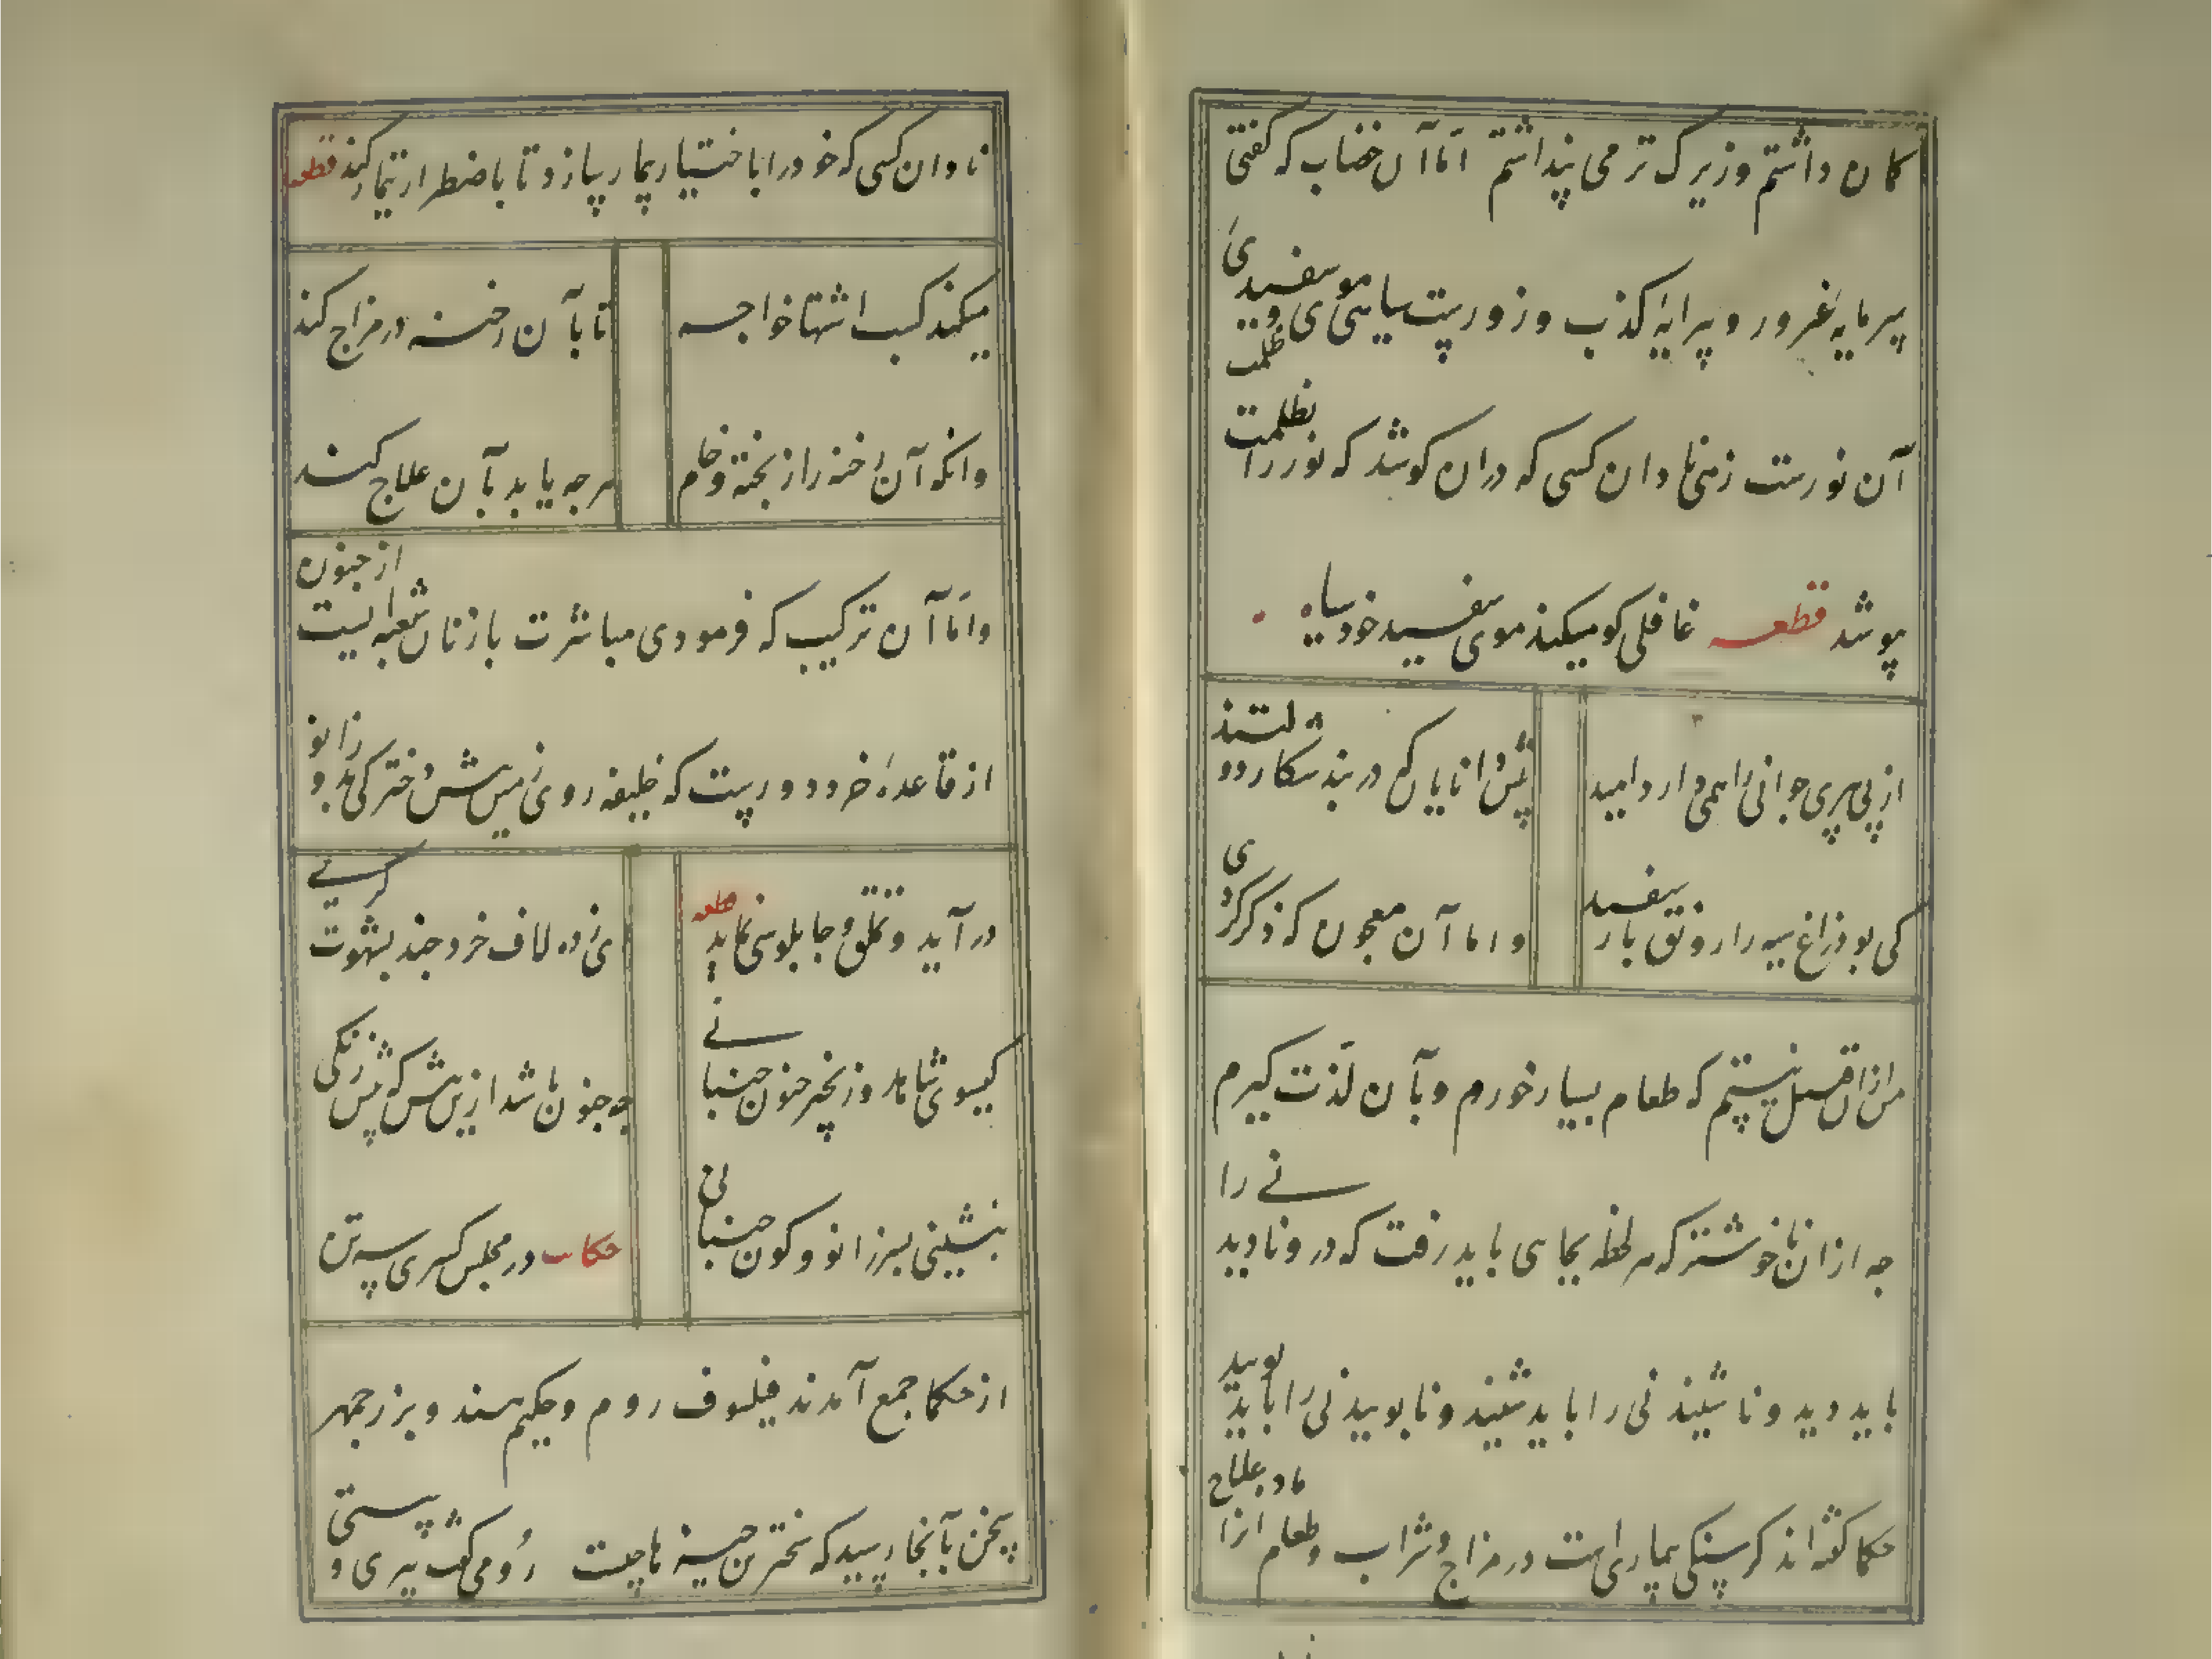 کمان داشتم و زیرک تر می پنداشتم اما آن خضاب که گفتی
سرمایه غرور و پیرایه کذب و زورست سیاهی موی و سفیدی ظلمت
آن نورست زهی نادان کسی که دران کوشد که نور را بظلمت
پوشد قطعه غافلی کو میکند موی سفید خود سیاه
از پی پیری جوانی را همی دارد امید
پیش دانایان که در بند شکار دولتند
کی بود زاغ سیه را رونق باز سفید
و اما آن معجون که ذکر کردی
من ازان قسل نیستم که طعام بسیار خورم و بآن لذت کیرم
جه ازان ناخوشتر که هر لحظه بجای می باید رفت که در و نادیدنی را
باید دید و ناشنیدنی را باید شنید و نابوییدنی را باید بویید
حکما کفته اند کرسنکی بیماری است در مزاج و شراب و طعام انرا ماده علاج
نادان کسی که خود را باختیار بیمار سازد تا باضطرار تیمار کند قطعه
میکند کسب اشتها خواجه
تا بآن رخنه در مزاج کند
وانکه آن رخنه را ز پخته و خام
هرجه یابد بآن علاج کند
و اما آن ترکیب که فرمودی مباشرت با زنان شعبه ایست از جنون
از قاعده خرد دورست که خلیفه روی زمین پیش دخترکی بدو زانو
در آید و تملق و جابلوسی نماید قطعه
ای زده لاف خرد جند بشهوت کرسے
کیسوی شاهد و زنجیر جنون جنبانے
جه جنون باشد ازین بیش که پیش زنکی
بنشینی بسر زانو و کون جنبانی
حکایت در مجلس کسری سه تن
از حکما جمع آمدند فیلسوف روم و حکیم هند و بزرجمهر
سخن بآنجا رسید که سخترین چیزها چیست رومی کفت پیری و سستی